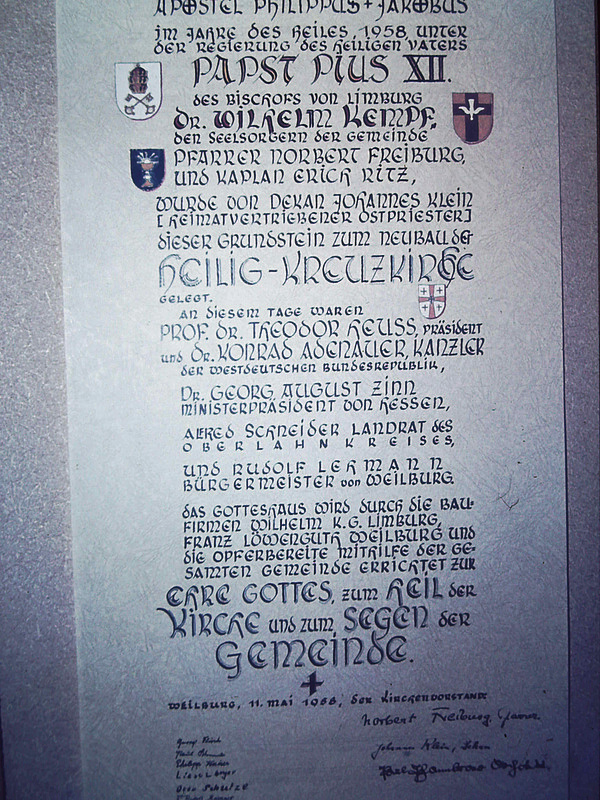 APOSTEL PHILIPPUS + JAKOBUS
IM JAHRE DES HEILES, 1958, UNTER
DER REGIERUNG DES HEILIGEN VATERS
PAPST PIUS XII.
DES BISCHOFS VON LIMBURG
DR. WILHELM KEMPF,
DEN SEELSORGERN DER GEMEINDE
PFARRER NORBERT FREIBURG,
UND KAPLAN ERICH RITZ,
WURDE VON DEKAN JOHANNES KLEIN
[HEIMATVERTRIEBENER OSTPRIESTER]
DIESER GRUNDSTEIN ZUM NEUBAU DER
HEILIG-KREUZKIRCHE
GELEGT.
AN DIESEM TAGE WAREN
PROF. DR. THEODOR HEUSS, PRÄSIDENT
UND DR. KONRAD ADENAUER, KANZLER
DER WESTDEUTSCHEN BUNDESREPUBLIK,
DR. GEORG AUGUST ZINN
MINISTERPRÄSIDENT VON HESSEN,
ALFRED SCHNEIDER LANDRAT DES
OBERLAHNKREISES,
UND RUDOLF LEHMANN
BÜRGERMEISTER VON WEILBURG.
DAS GOTTESHAUS WIRD DURCH DIE BAU-
FIRMEN WILHELM K.G. LIMBURG,
FRANZ LÖWENGUTH WEILBURG UND
DIE OPFERBEREITE MITHILFE DER GE-
SAMTEN GEMEINDE ERRICHTET ZUR
EHRE GOTTES, ZUM HEIL DER
KIRCHE UND ZUM SEGEN DER
GEMEINDE.
WEILBURG, 11. MAI 1958, DER KIRCHENVORSTAND
Norbert Freiburg, Pfarrer
Johann Klein, Dekan
Otto Schulze